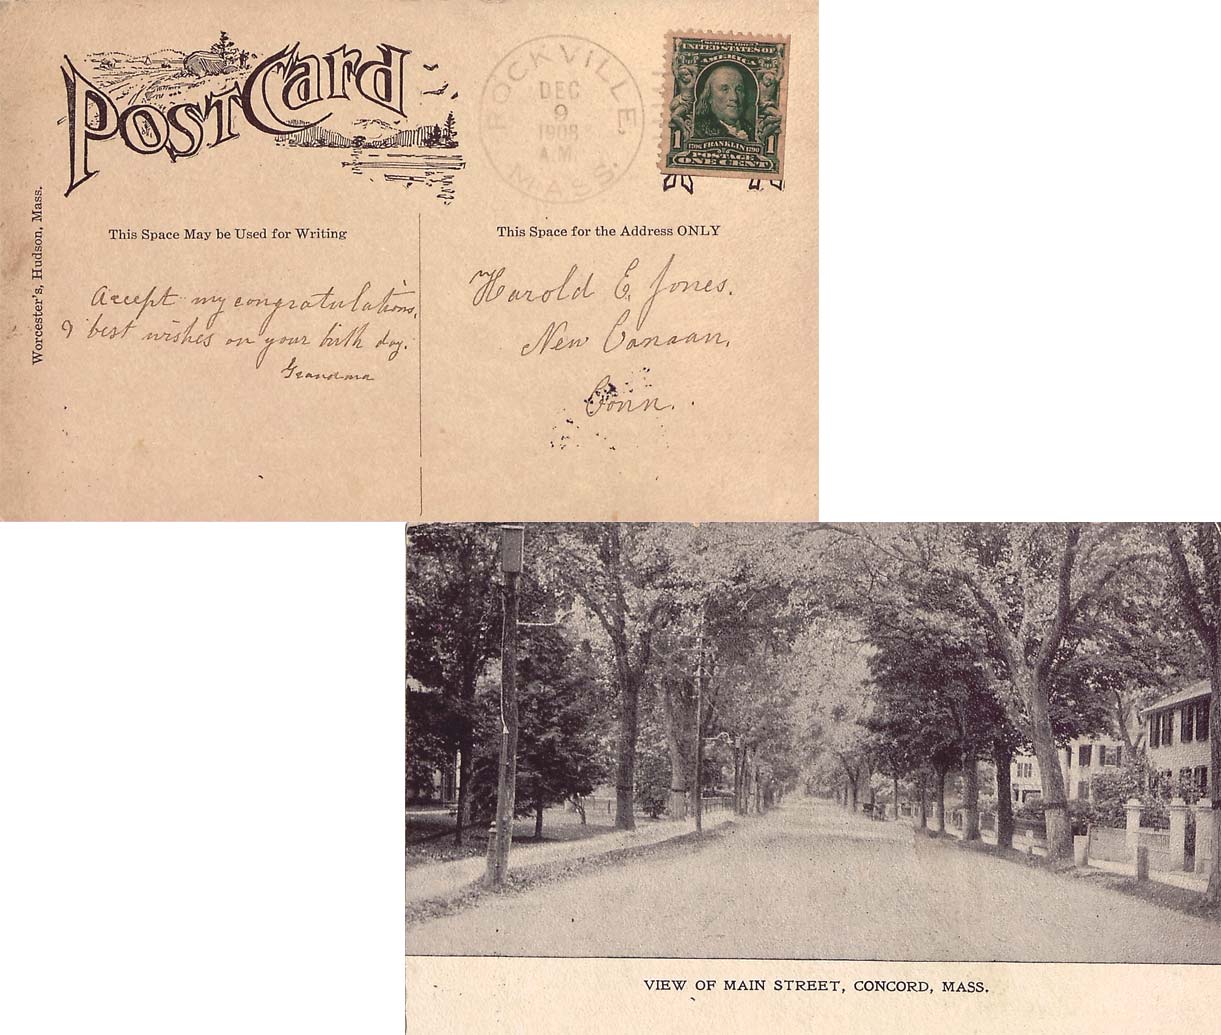 Post Card
ROCKVILLE,
DEC
9
1908
A.M.
MASS.
SERIES 1902
UNITED STATES OF
AMERICA
1 1706 FRANKLIN 1790 1
POSTAGE
ONE CENT
Worcester's, Hudson, Mass.
This Space May be Used for Writing
This Space for the Address ONLY
Accept my congratulations,
& best wishes on your birth day.
Grandma
Harold E. Jones.
New Canaan,
Conn.
VIEW OF MAIN STREET, CONCORD, MASS.